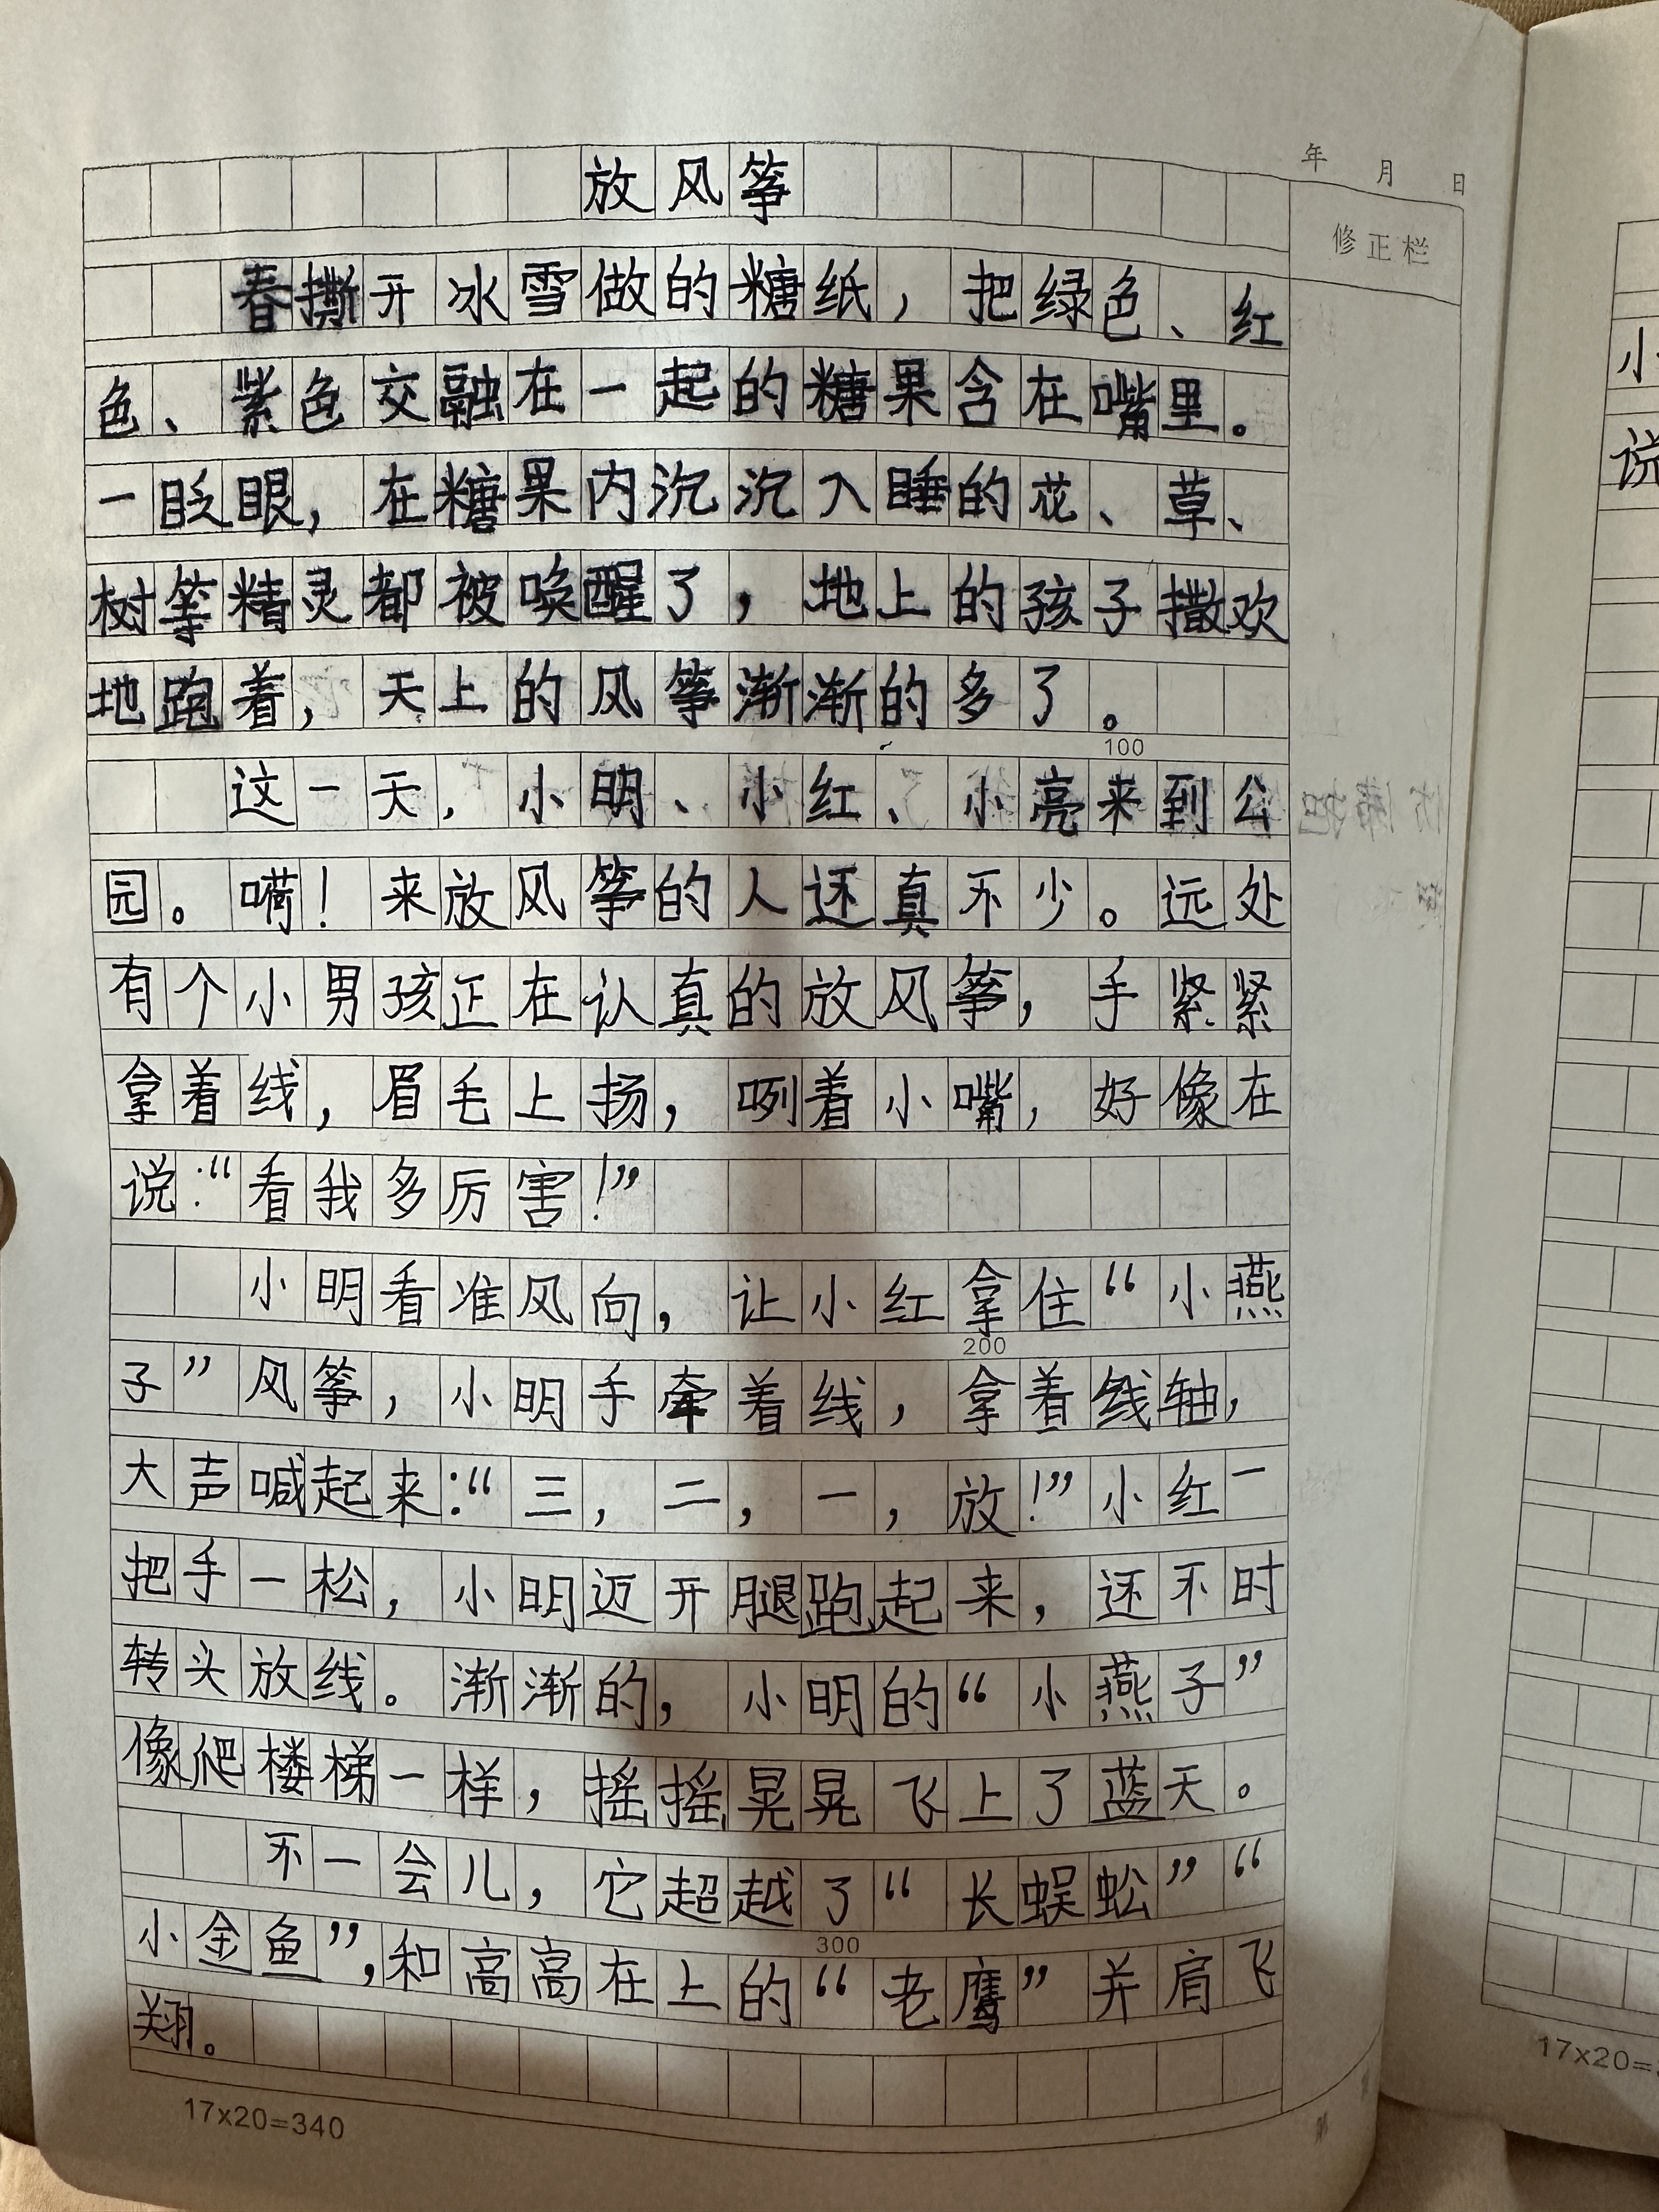 年 月 日
修正栏
放风筝
春撕开冰雪做的糖纸，把绿色、红
色、紫色交融在一起的糖果含在嘴里。
一眨眼，在糖果内沉沉入睡的花、草、
树等精灵都被唤醒了，地上的孩子撒欢
地跑着，天上的风筝渐渐的多了。
100
这一天，小明、小红、小亮来到公
园。嗬！来放风筝的人还真不少。远处
有个小男孩正在认真的放风筝，手紧紧
拿着线，眉毛上扬，咧着小嘴，好像在
说：“看我多厉害！”
小明看准风向，让小红拿住“小燕
200
子”风筝，小明手牵着线，拿着线轴，
大声喊起来：“三，二，一，放！”小红一
把手一松，小明迈开腿跑起来，还不时
转头放线。渐渐的，小明的“小燕子”
像爬楼梯一样，摇摇晃晃飞上了蓝天。
不一会儿，它超越了“长蜈蚣”“
300
小金鱼”，和高高在上的“老鹰”并肩飞
翔。
17x20=340
小
说
17x20=